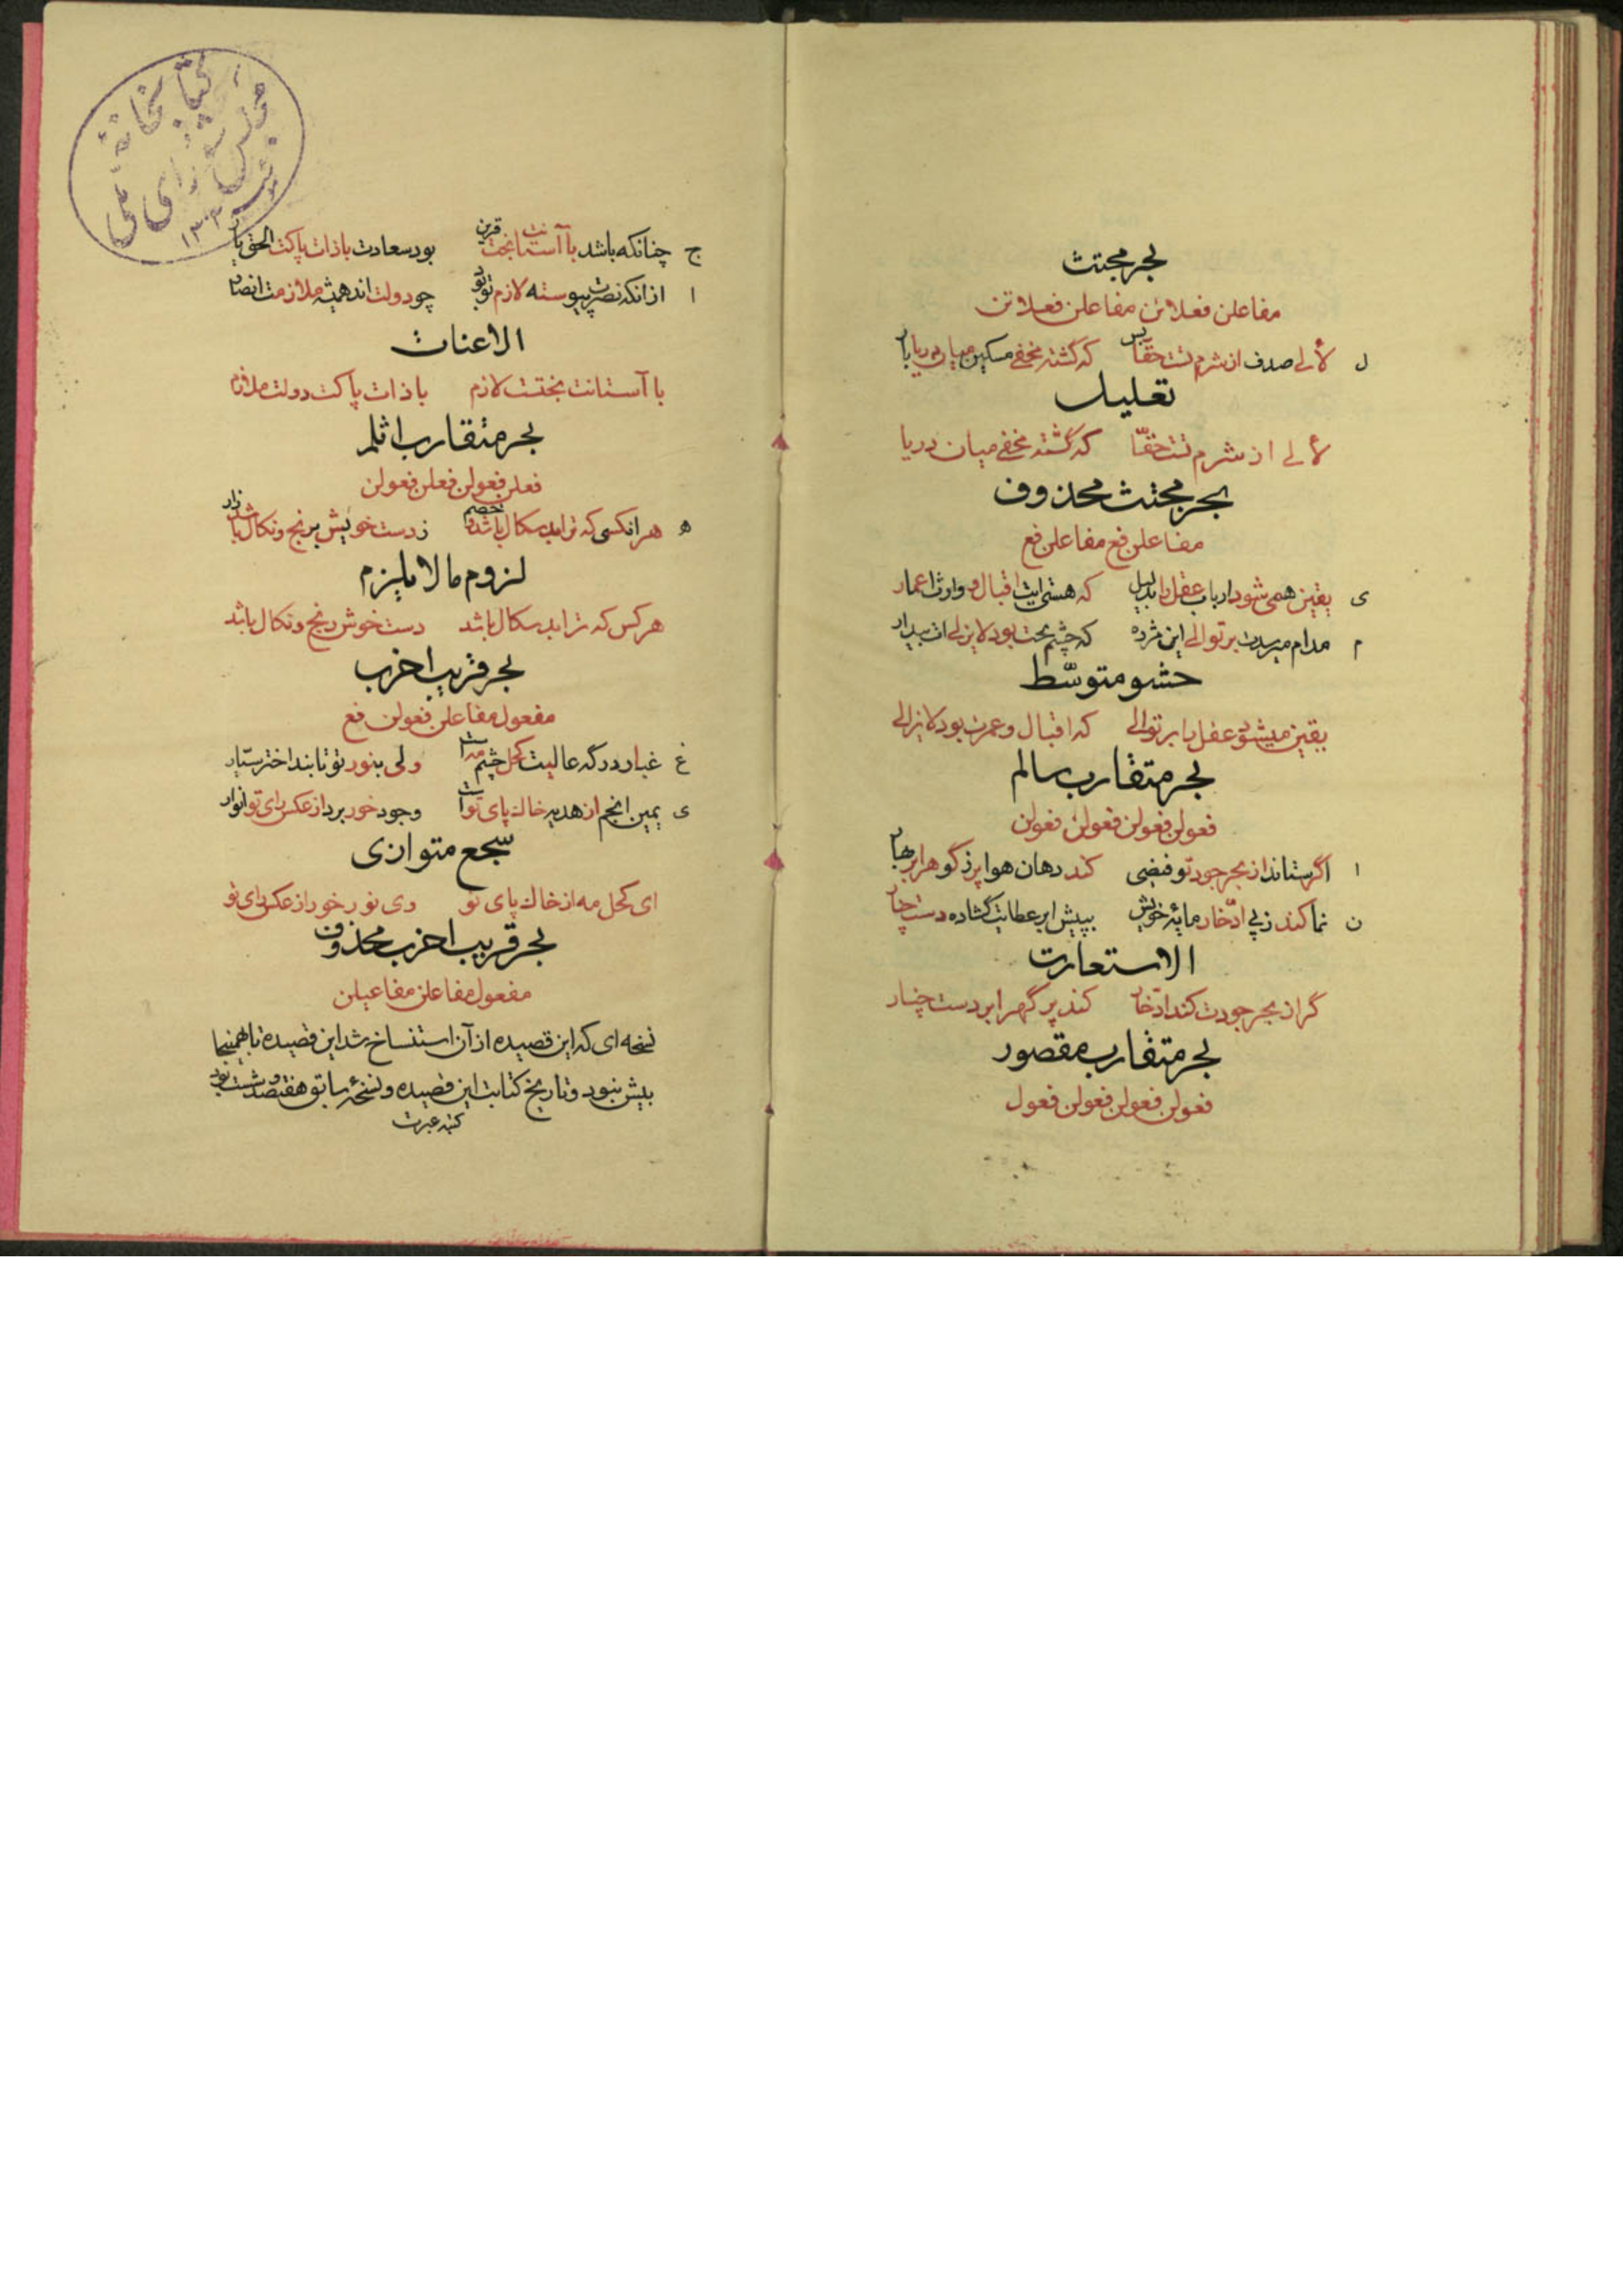 بحر مجتث
مفاعلن فعلاتن مفاعلن فعلاتن
ل لألی صدف از شرم تست حقا بس که گشته مخفی مسکین میان دریا بار
تعلیل
لألی از شرم تست حقّا که گشته مخفی میان دریا
بحر مجتث محذوف
مفاعلن فع مفاعلن فع
ی یقین همی شود ارباب عقل را بدلیل که هستی اقبال و وارث اعمار
م مدام میرسدت بر توالی این مژده که چشم بخت بود لایزالی ات بیدار
حشو متوسّط
یقین میشود عقل را بر توالی که اقبال و عمرت بود لایزالی
بحر متقارب سالم
فعولن فعولن فعولن فعولن
ا اگر ستاند از بحر جود تو فیضی کند دهان هوا پر ز گوهر ابر بهار
ن نما کند ز پی ادّخار مایهٔ خویش بپیش ابر عطایت گشاده دست چنار
الاستعارت
گر از بحر جودت کند ادّخار کند پر گهر ابر دست چنار
بحر متقارب مقصور
فعولن فعولن فعولن فعول
کتابخانهٔ
مجلس شورای ملی
۱۳۰۲
ج چنانکه باشد با آستانت بخت قرین بود سعادت با ذات پاکت الحق یار
ا از انکه نصرت پیوسته لازم تو بود چو دولت اند همیشه ملازمت انصار
الاعنات
با آستانت بختت لازم با ذات پاکت دولت ملازم
بحر متقارب اثلم
فعلن فعولن فعلن فعولن
ه هر انکسی که ترا بدسکال باشد خصم ز دست خویش برنج و نکال باشد زار
لزوم ما لا یلزم
هر کس که ترا بدسکال باشد دست خوش رنج و نکال باشد
بحر قریب اخرب
مفعول مفاعلن فعولن فع
غ غبار درگه عالیت کحل چشم مه است ولی بنور تو تابند اختر سیّار
ی یمین انجم از هدیه خاک پای تو است وجود خور برد از عکس رای تو انوار
سجع متوازی
ای کحل مه از خاک پای تو وی نور خور از عکس رای تو
بحر قریب اخرب محذوف
مفعول مفاعلن مفاعیلن
نسخه ای که این قصیده از آن استنساخ شد این قصیده تا همینجا
بیش نبود و تاریخ کتابت این قصیده و نسخهٔ سابق هفتصد و شست بود
کتبه عبرت